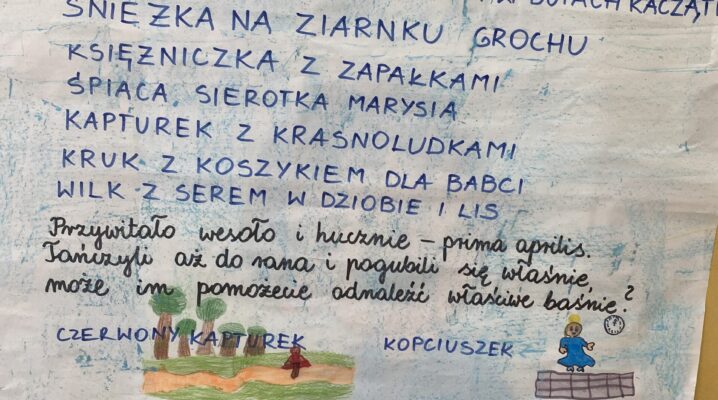 W BUTACH KACZĄT
ŚNIEŻKA NA ZIARNKU GROCHU
KSIĘŻNICZKA Z ZAPAŁKAMI
ŚPIĄCA SIEROTKA MARYSIA
KAPTUREK Z KRASNOLUDKAMI
KRUK Z KOSZYKIEM DLA BABCI
WILK Z SEREM W DZIOBIE I LIS
Przywitało wesoło i hucznie – prima aprilis.
Tańczyli aż do rana i pogubili się właśnie,
może im pomożecie odnaleźć właściwe baśnie?
CZERWONY KAPTUREK KOPCIUSZEK